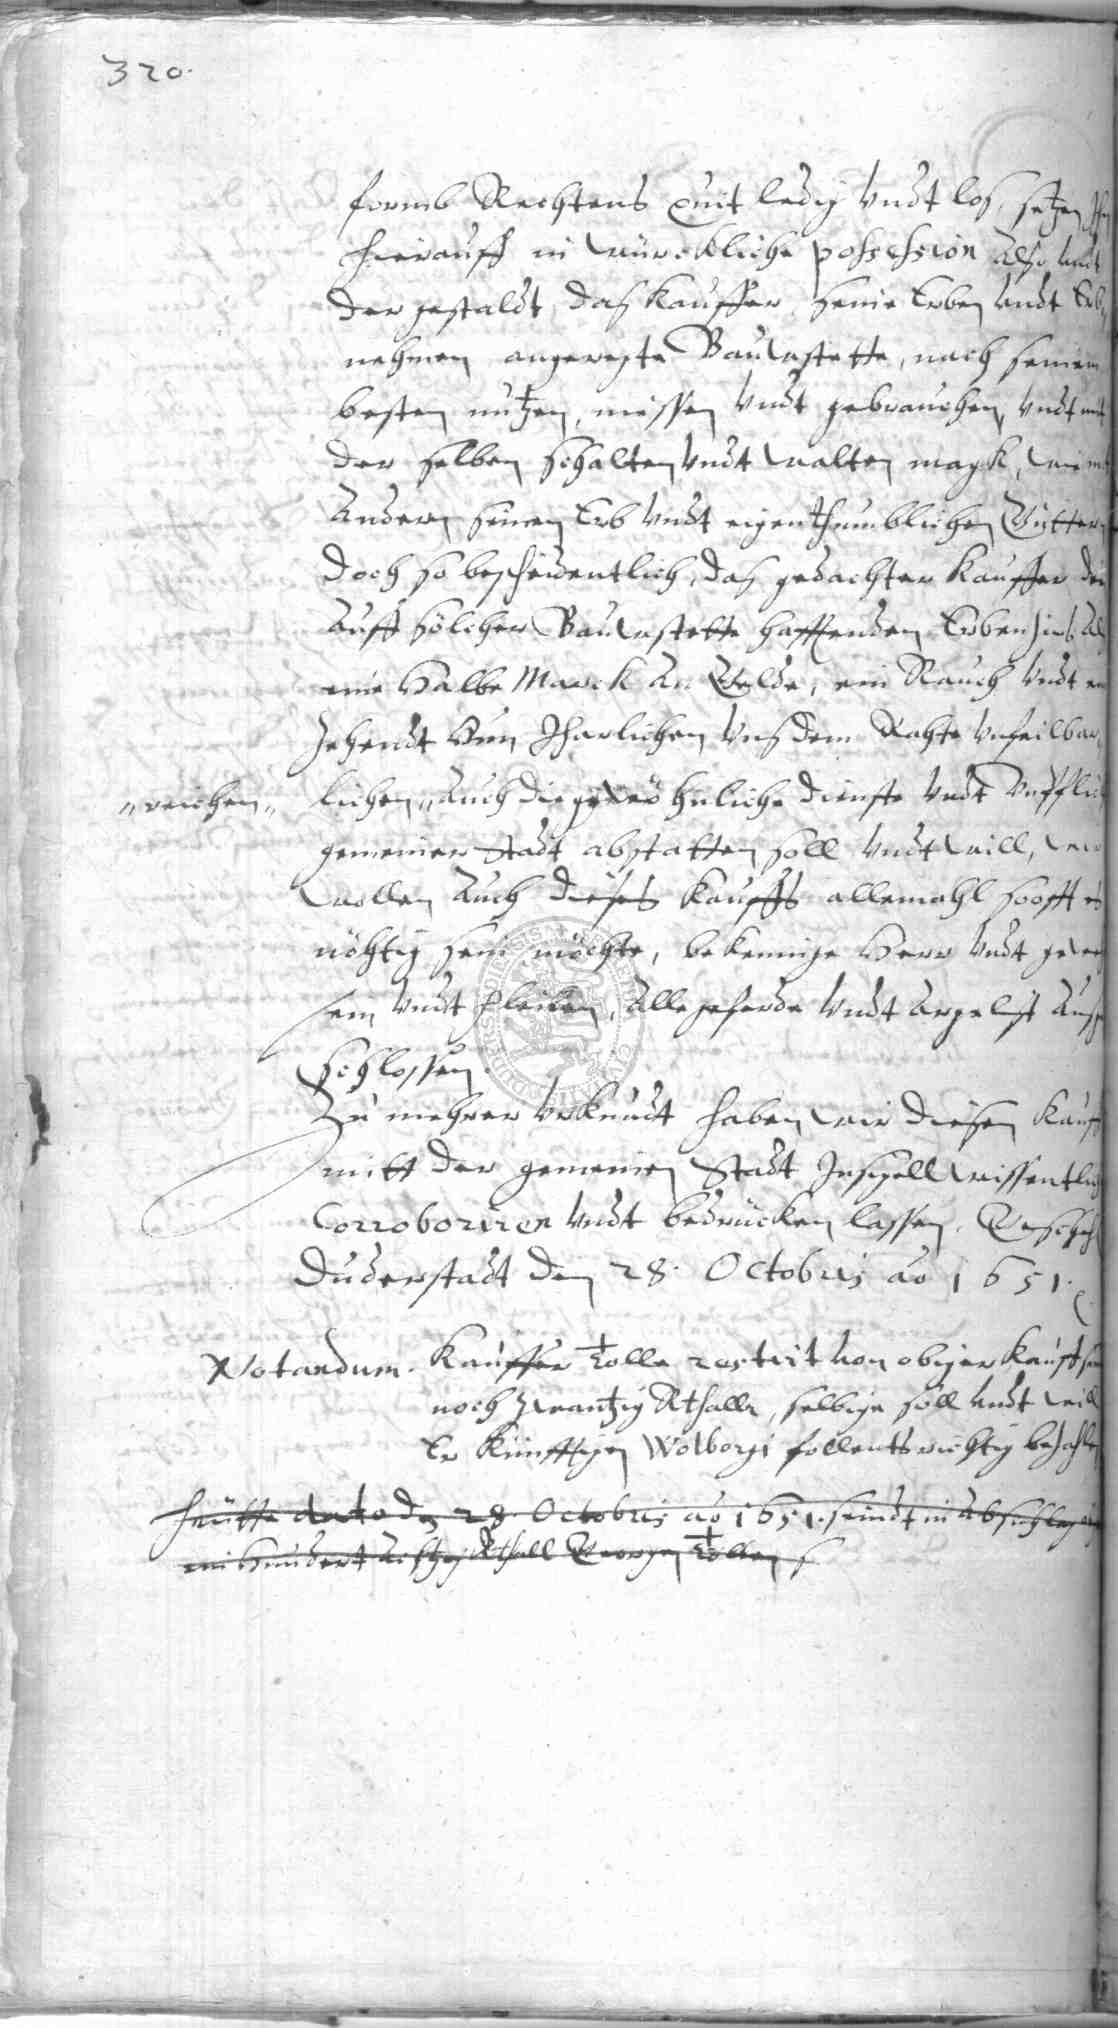 320.
formb Rechtens quit ledig undt los, setzen Ihn
hierauff in würckliche possession also undt
der gestaldt, das Kauffer seine Erben undt Erb
nehmen angeregte Baustette, nach seinem
besten nutzen, niessen undt gebrauchen, undt mit
der selben schalten undt walten magk, wie mit
Andern seinen Erb undt eigenthumblichen Gütter
Doch so bescheidentlich, das gedachter Kauffer den
Auff solcher Baustette hafftenden Erbenzins Als
eine Halbe Marck An Gelde, ein Rauch undt ein
Zehendt Hun Jharlichen uns dem Rahte unfeilbar
"reichen" lichen " Auch die gewöhnliche dienste undt Unpflicht
gemeiner Stadt abstatten soll undt will, wir
wollen Auch dieses Kauffs allemahl so offt es
nöhtig sein möchte, bekennige Herr undt gewehr
sein undt pleiben, Alle geferde undt Argelist Ausge
schlossen.
Zu mehrer Urkundt haben wir diesen Kauff
mitt der gemeinen Stadt Insigell wissentlich
Corroboriren undt bedrücken lassen. Geschehen
Duderstadt den 28. Octobris ao 1651.
Notandum. Kauffer Tolle restirt von obiger Kauff
noch zwantzig Rthalle, selbige soll undt will
Er Künfftigen Wolborgi follents richtig bezahlen
Heutte dato den 28. Octobris ao 1651. seindt in Abschlag
ein Hundert Rthall Georgen Tollen